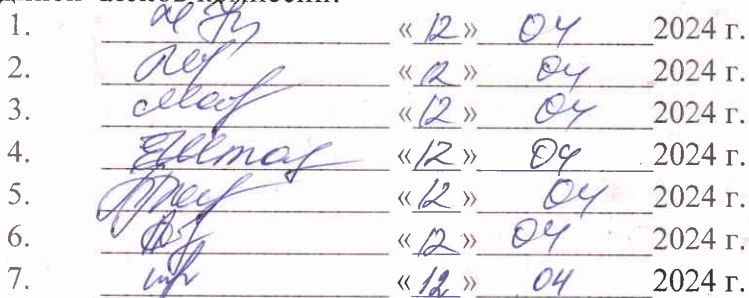 членов комиссии:
1. «12» 04 2024 г.
2. «12» 04 2024 г.
3. «12» 04 2024 г.
4. «12» 04 2024 г.
5. «12» 04 2024 г.
6. «12» 04 2024 г.
7. «12» 04 2024 г.